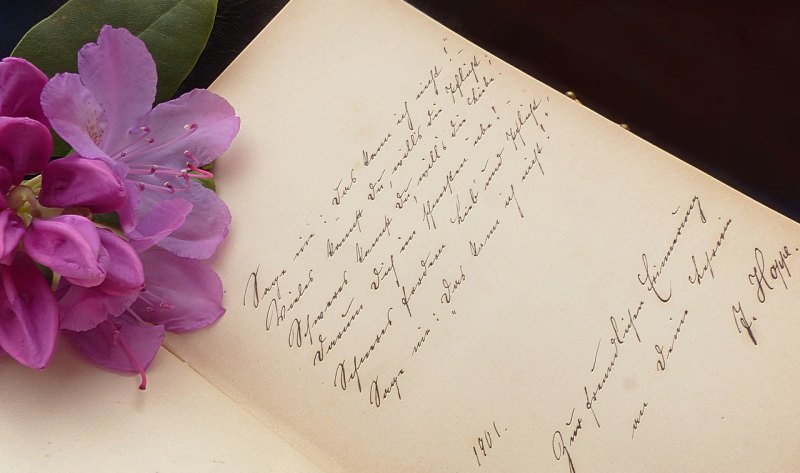 Sage nie: „Das kann ich nicht!" –
Vieles kannst Du, will's die Pflicht;
Schweres kannst Du, will's die Liebe.
Darum Dich im Schwersten übe! –
Schweres fordern Lieb' und Pflicht,
Sage nie: „Das kann ich nicht!".
1901.
Zur freundlichen Erinnerung
an Deine Lehrerin
J. Hoppe.